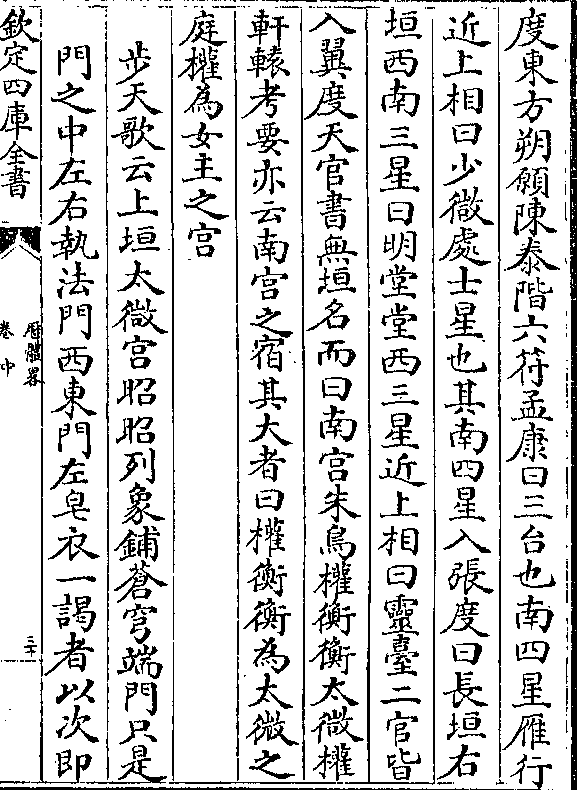 度東方朔願陳泰階六符孟康曰三台也南四星雁行
近上相曰少微處士星也其南四星入張度曰長垣右
垣西南三星曰明堂堂西三星近上相曰靈臺二官皆
入翼度天官書無垣名而曰南宫朱鳥權衡衡太微權
軒轅考要亦云南宫之宿其大者曰權衡衡為太微之
庭權為女主之宫
步天歌云上垣太微宫昭昭列象鋪蒼穹端門只是
門之中左右執法門西東門左皂衣一謁者以次即
欽定四庫全書
厯體畧
卷中
三十